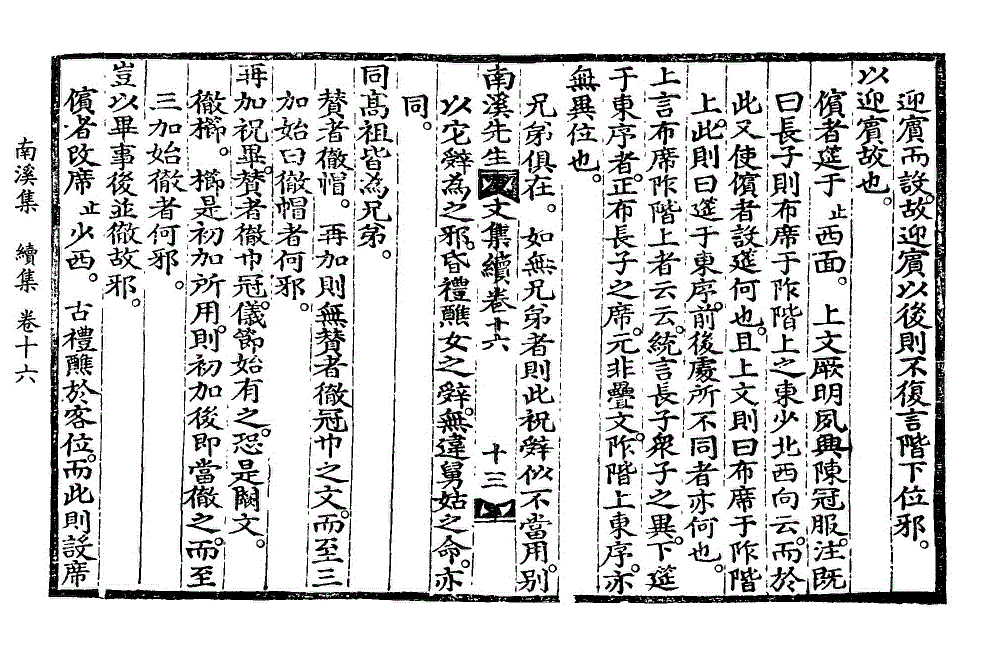 迎賓而設。故迎賓以後則不復言階下位邪。
以迎賓故也。
儐者筵于 止 西面。 上文厥明夙興陳冠服。注既
曰長子則布席于阼階上之東少北西向云。而於
此又使儐者設筵何也。且上文則曰布席于阼階
上。此則曰筵于東序。前後處所不同者亦何也。
上言布席阼階上者云云。統言長子衆子之異。下筵
于東序者。正布長子之席。元非疊文。阼階上東序。亦
無異位也。
兄弟俱在。 如無兄弟者則此祝辭似不當用。別
南溪先生文集續卷十六 十三
以它辭爲之邪。昏禮醮女之辭。無違舅姑之命。亦
同。
同高祖皆爲兄弟。
賛者徹帽。 再加則無賛者徹冠巾之文。而至三
加始曰徹帽者何邪。
再加祝畢。賛者徹巾冠。儀節始有之。恐是闕文。
徹櫛。 櫛是初加所用。則初加後即當徹之。而至
三加始徹者何邪。
豈以畢事後並徹故邪。
儐者改席 止 少西。 古禮醮於客位。而此則設席
南溪集 續集 卷十六